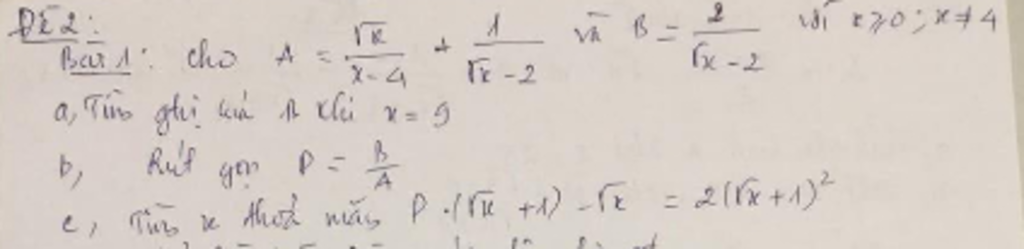 Đề 2:
Bài 1: cho A = √x/(x-4) + 1/(√x-2) và B = 2/(√x-2) với x ⩾ 0; x ≠ 4
a, Tìm ghị giá B khi x = 9
b, Rút gọn P = B/A
c, Tìm x thoả mãn P.(√x +1) - √x = 2(√x+1)²